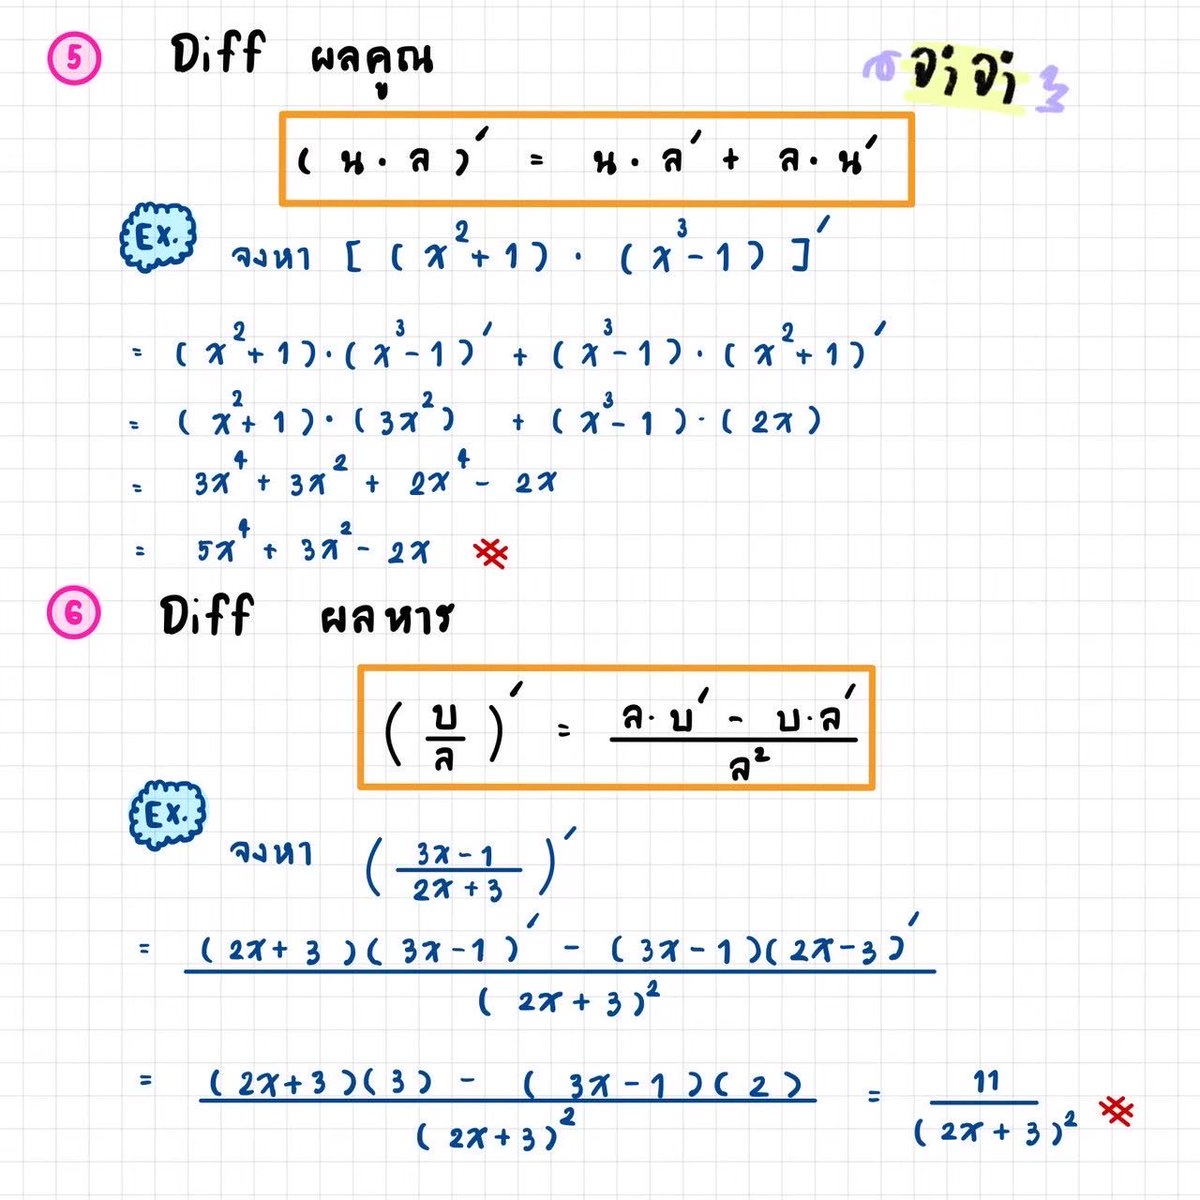 5 Diff ผลคูณ
จำจำ
( น · ล )′ = น · ล′ + ล · น′
Ex. จงหา [ ( x² + 1 ) · ( x³ - 1 ) ]′
= ( x² + 1 ) · ( x³ - 1 )′ + ( x³ - 1 ) · ( x² + 1 )′
= ( x² + 1 ) · ( 3x² ) + ( x³ - 1 ) · ( 2x )
= 3x⁴ + 3x² + 2x⁴ - 2x
= 5x⁴ + 3x² - 2x
6 Diff ผลหาร
( บ / ล )′ = ( ล · บ′ - บ · ล′ ) / ล²
Ex. จงหา ( 3x - 1 / 2x + 3 )′
= ( 2x + 3 )( 3x - 1 )′ - ( 3x - 1 )( 2x - 3 )′ / ( 2x + 3 )²
= ( 2x + 3 )( 3 ) - ( 3x - 1 )( 2 ) / ( 2x + 3 )² = 11 / ( 2x + 3 )²